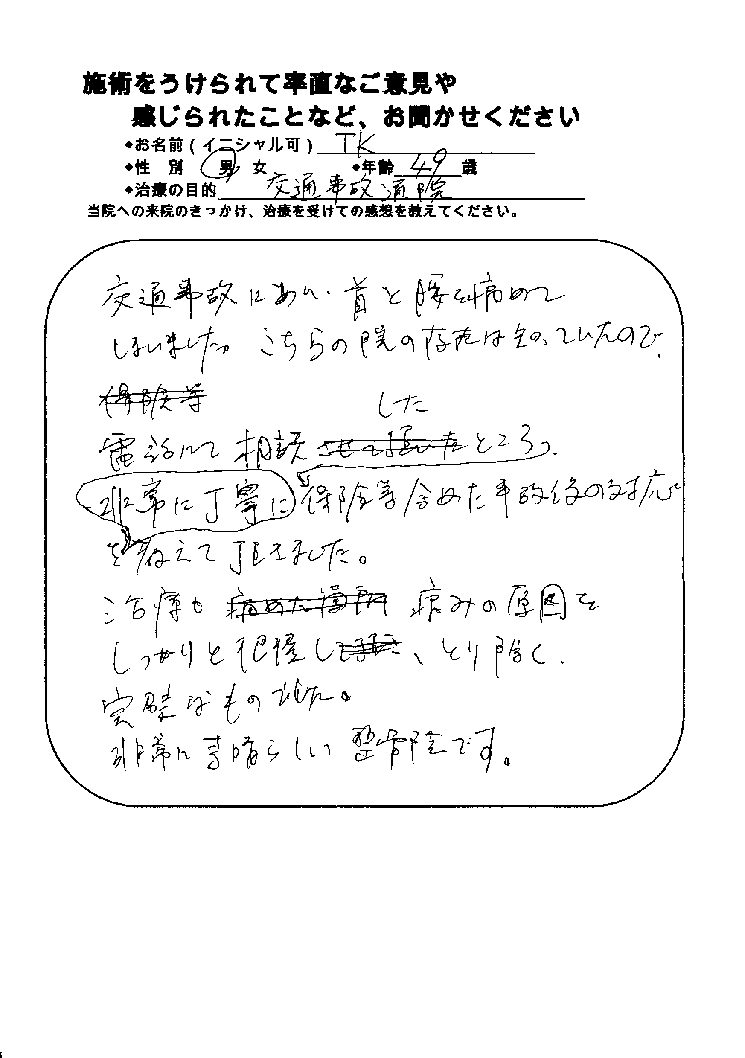 施術をうけられて率直なご意見や
感じられたことなど、お聞かせください
◆お名前(イニシャル可) TK
◆性 別 男 女 ◆年齢 49 歳
◆治療の目的 交通事故通院
当院への来院のきっかけ、治療を受けての感想を教えてください。
交通事故にあい、首と腰を痛めて
しまいました。こちらの院の存在は知っていたので、
保険等
した
電話にて相談 させて頂いた ところ、
非常に丁寧に 保険等含めた事故後の対応
を教えて頂きました。
治療も 痛みの原因を
しっかりと把握し、とり除く、
完璧なものでした。
非常に素晴らしい整骨院です。